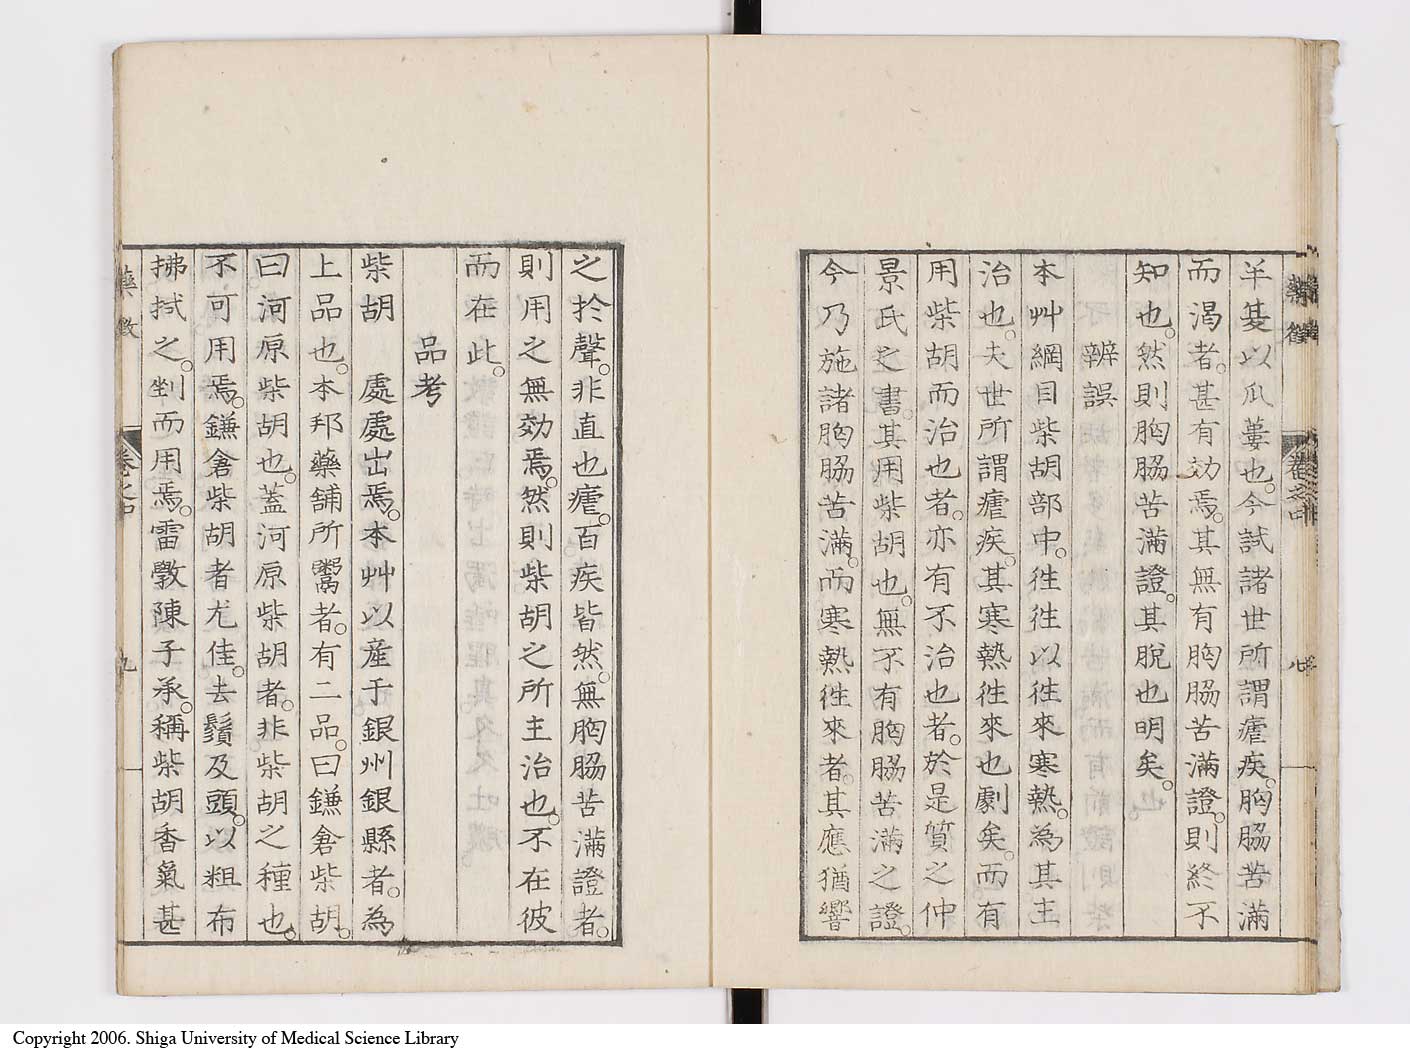 羊芰以瓜蔞也。今試諸世所謂瘧疾。胸脇苦滿
而渴者。甚有効焉。其無有胸脇苦滿證。則終不
知也。然則胸脇苦滿證。其脫也明矣。
辨誤
本艸綱目柴胡部中。徃徃以徃來寒熱。為其主
治也。夫世所謂瘧疾。其寒熱徃來也劇矣。而有
用柴胡而治也者。亦有不治也者。於是質之仲
景氏之書。其用柴胡也。無不有胸脇苦滿之證。
今乃施諸胸脇苦滿。而寒熱徃來者。其應猶響
之於聲。非直也瘧。百疾皆然。無胸脇苦滿證者。
則用之無効焉。然則柴胡之所主治也。不在彼
而在此。
品考
柴胡 處處出焉。本艸以産于銀州銀縣者。為
上品也。本邦藥舖所鬻者。有二品。曰鎌倉柴胡。
曰河原柴胡也。蓋河原柴胡者。非柴胡之種也。
不可用焉。鎌倉柴胡者尤佳。去鬚及頭。以粗布
拂拭之。剉而用焉。雷斆陳子承。稱柴胡香氣甚
藥徵
卷之中
九
Copyright 2006. Shiga University of Medical Science Library